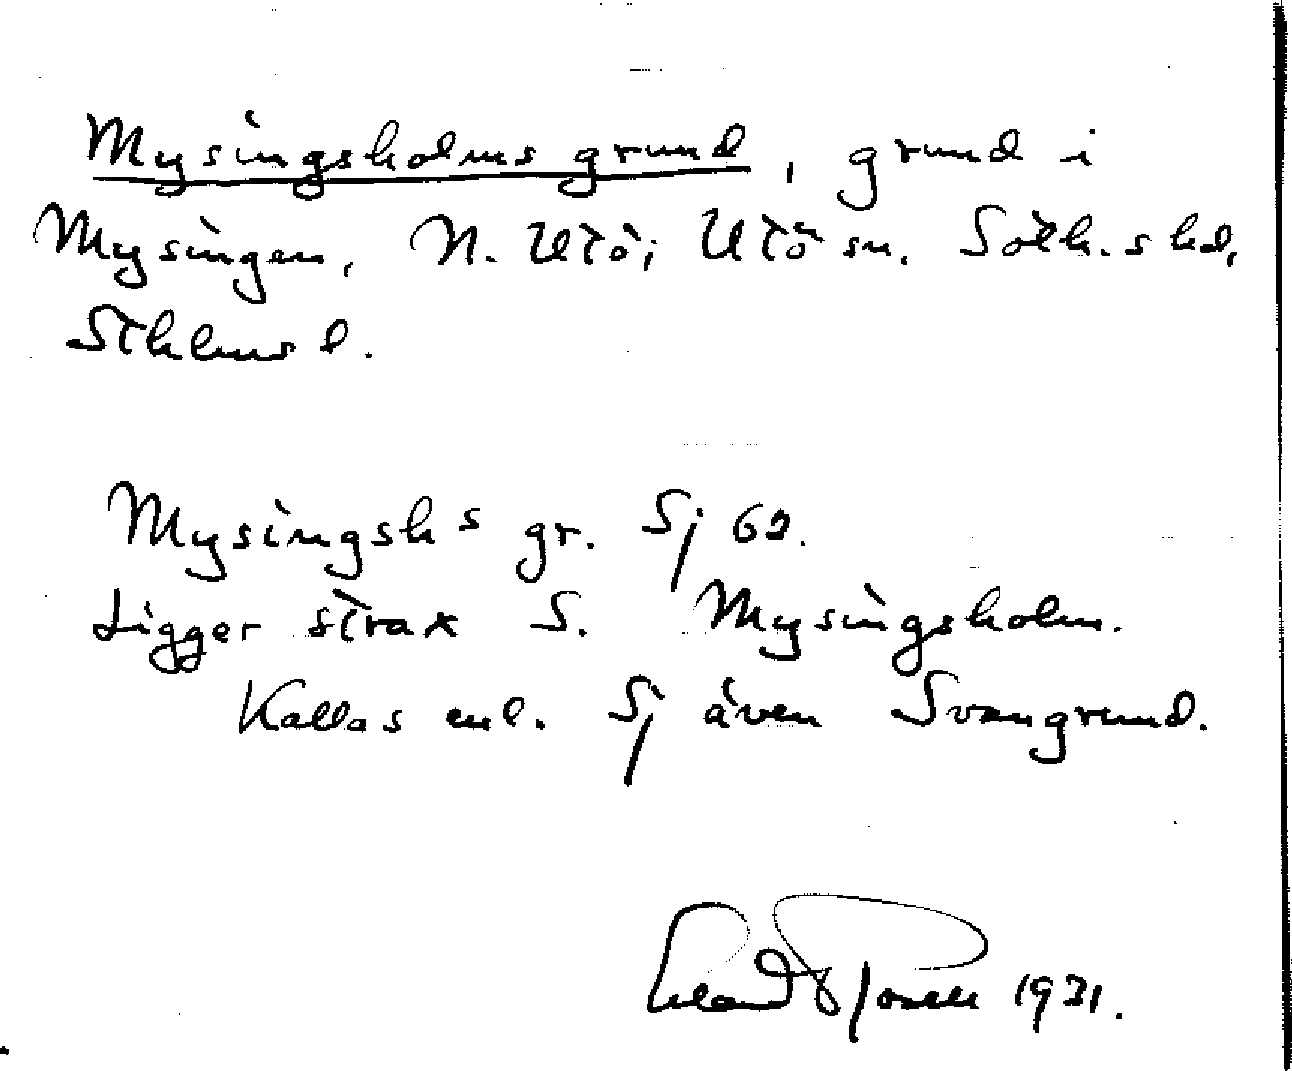 Mysingsholms grund, grund i
Mysingen, N. Utö; Utö sn. Soth.s hd,
Sthlms l.
Mysingsh s gr. Sj 62.
Ligger strax S. Mysingsholm.
Kallas enl. Sj även Svangrund.
1931.